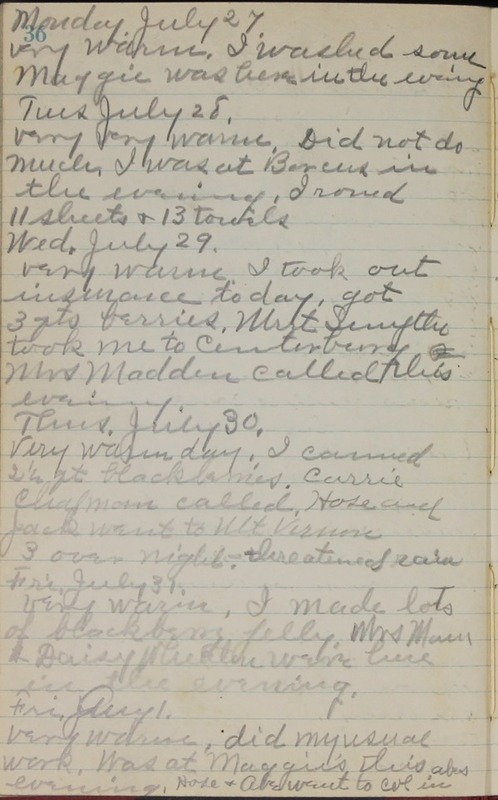 Monday July 27
36
very warm. I washed some
Maggie was here in the evning
Tues July 28.
very very warm. Did not do
much, I was at in
the evening, Ironed
11 sheets & 13 towels
Wed. July 29.
very warm I took out
insurance today, got
3 qts berries. Mrs Smythe
took me to Centerberry
Mrs Madden called this
evening
Thus. July 30.
Very warm day. I canned
2½ qt blackberries. Carrie
Chapman called. Hose and
Jack went to Mt Vernon
3 over night - threatened rain
Fri. July 31.
very warm, I made lots
of blackberry jelly. Mrs
& Daisy were here
in the evening.
Fri. Aug 1.
very warm, did my usual
work. Was at Maggies this
evening. Hose & went to Col in